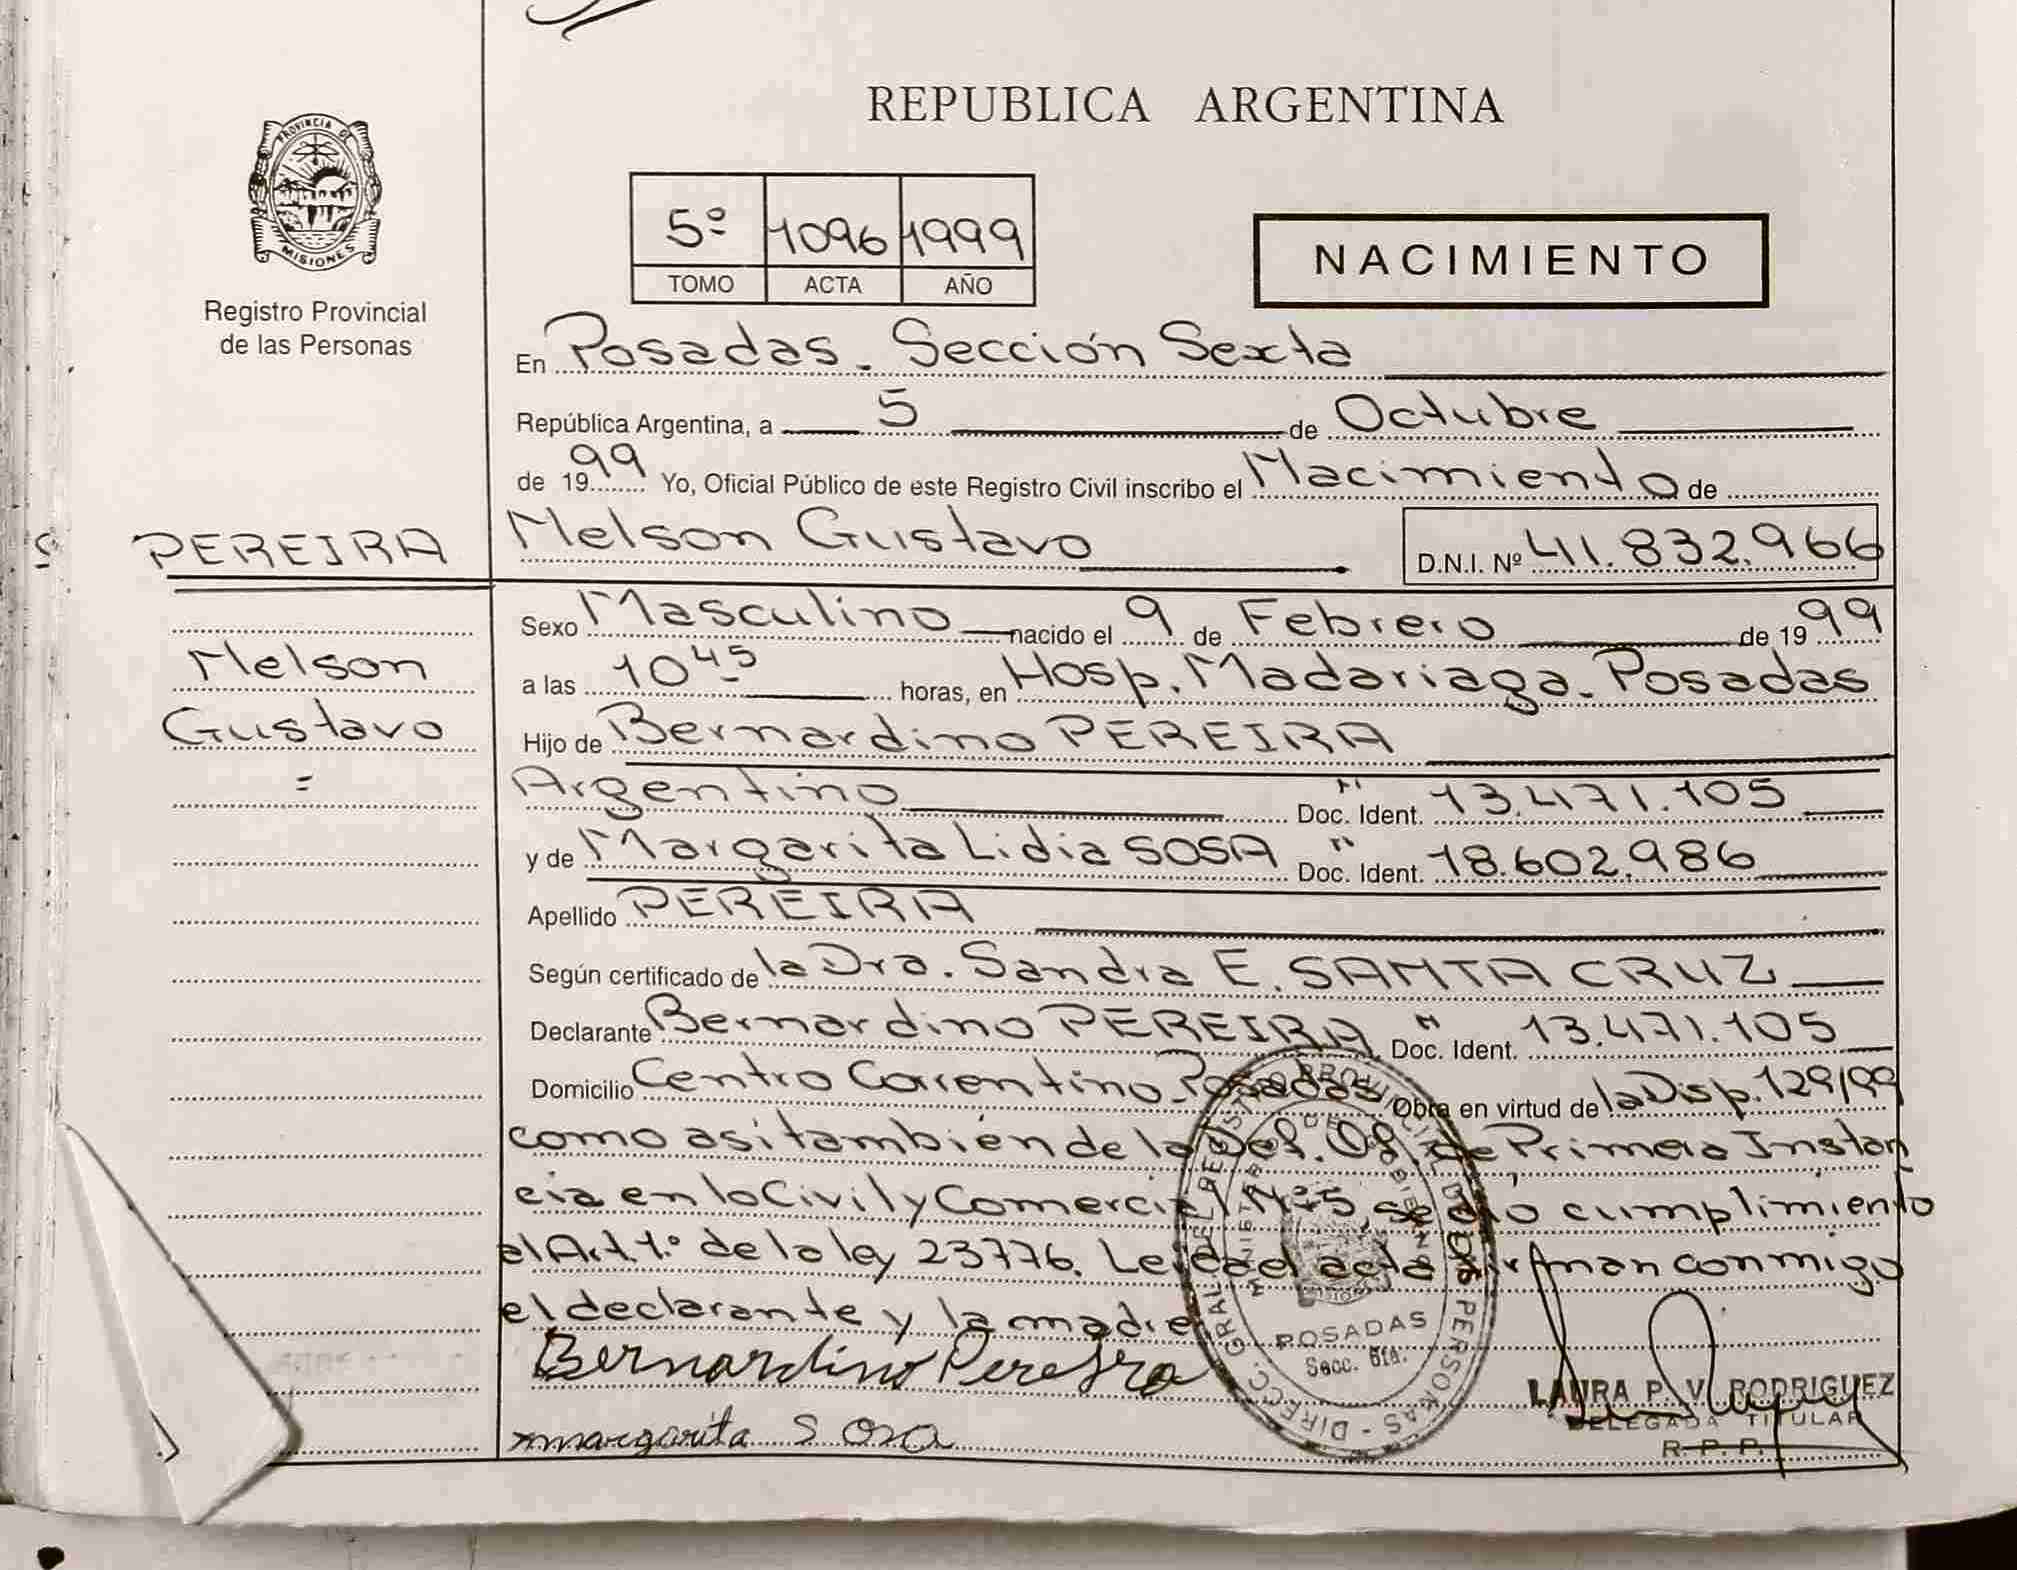 REPUBLICA ARGENTINA
PROVINCIA DE
MISIONES
Registro Provincial
de las Personas
5º 1096 1999
TOMO ACTA AÑO
NACIMIENTO
En Posadas. Sección Sexta
República Argentina, a 5 de Octubre
de 1999 Yo, Oficial Público de este Registro Civil inscribo el Nacimiento de
PEREIRA Nelson Gustavo D.N.I. Nº 41.832.966
Sexo Masculino nacido el 9 de Febrero de 1999
Nelson
a las 10 45 horas, en Hosp. Madariaga. Posadas
Gustavo
Hijo de Bernardino PEREIRA
Argentino Doc. Ident. " 13.471.105
y de Margarita Lidia SOSA Doc. Ident. " 18.602.986
Apellido PEREIRA
Según certificado de la Dra. Sandra E. SANTA CRUZ
Declarante Bernardino PEREIRA Doc. Ident. " 13.471.105
Domicilio Centro Correntino. Posadas Obra en virtud de la Disp. 129/99
como asi también de la Def. Of. de Primera Instan
cia en lo Civil y Comercial Nº 5, se dio cumplimiento
al Art. 1.º de la ley 23776. Leida el acta firman conmigo
el declarante y la madre
Bernardino Pereira
margarita Sosa
DIRECC. GRAL. DEL REGISTRO PROVINCIAL DE LAS PERSONAS
MINISTERIO DE GOBIERNO
POSADAS
Secc. 6ta.
LAURA P. V. RODRIGUEZ
DELEGADA TITULAR
R. P. P.